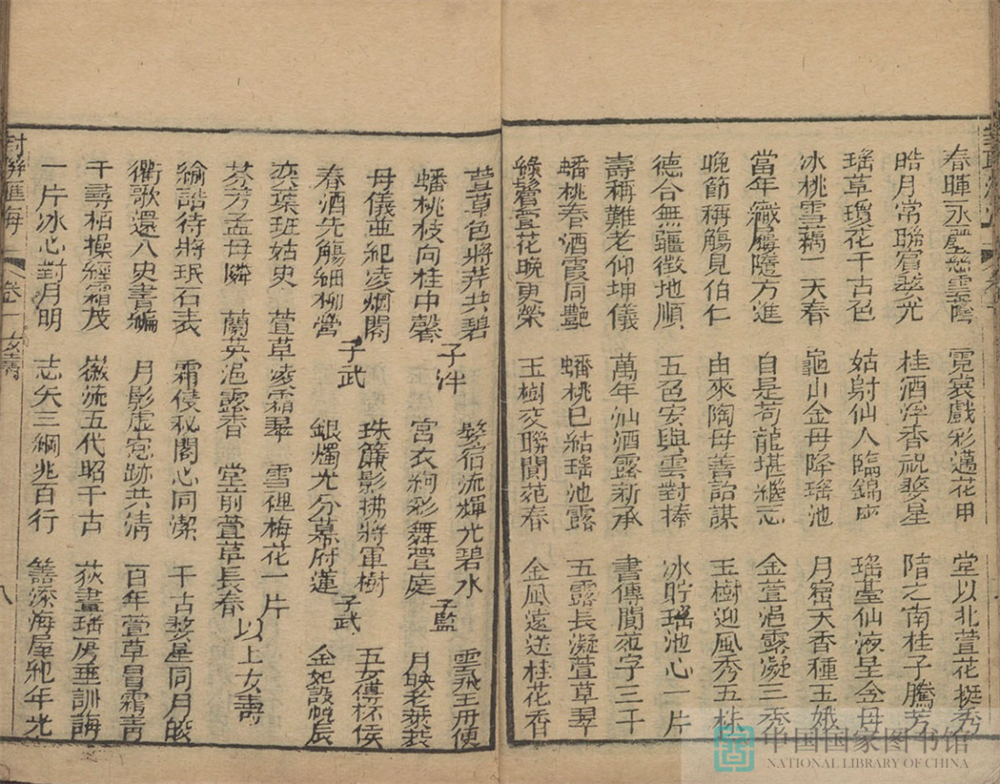 春暉永壓慈雲蔭 霓裳戲彩邁花甲 堂以北萱花挺秀
皓月常聯寶婺光 桂酒浮香祝婺星 陔之南桂子騰芳
瑶草瓊花千古色 姑射仙人臨錦座 瑶臺仙液呈金母
冰桃雪藕一天春 龜山金母降瑶池 月窟天香種玉娥
當年織屨隨方進 自是荀龍堪繼志 金萱浥露凝三秀
晚節稱觴見伯仁 由來陶母善詒謀 玉樹迎風秀五株
德合無疆徵地順 五色安輿雲對捧 冰貯瑶池心一片
壽稱難老仰坤儀 萬年仙酒露新承 書傳閫范字三千
蟠桃春酒霞同艷 蟠桃已結瑶池露 五露長凝萱草翠
綠鬢萱花晚更榮 玉樹交聯閬苑春 金風遠送桂花香
萱草色將芹共碧 婺宿流輝光碧水 雲飛玉册使
蟠桃枝向桂中馨 子泮 宮衣絢彩舞萱庭 子監 月映老萊裳
母儀並紀凌烟閣 珠簾影拂將軍樹 五女傳杯侯
春酒先觴細柳營 子武 銀燭光分幕府蓮 子武 金妃設帨辰
奕葉班姑史 萱草凌霜翠 雪裡梅花一片
芬芳孟母鄰 蘭英浥露香 堂前萱草長春 以上女壽
綸誥待將珉石表 霜侵秘閣心同潔 千古婺星同月皎
衢歌還入史書編 月影虛窓跡共清 百年萱草冒霜青
千尋栢操經霜茂 徽流五代昭千古 荻畫瑶房垂訓誨
一片冰心對月明 志矢三綱兆百行 籌添海屋祀年光
對聯匯海 卷一 女壽 八
中国国家图书馆
NATIONAL LIBRARY OF CHINA